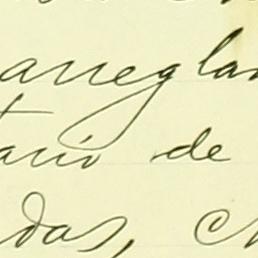 arreglar
tario de
das,